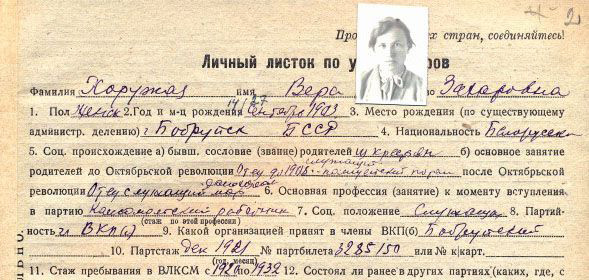 2
Про х стран, соединяйтесь!
Личный листок по у ров
Фамилия Хоружая имя Вера Захаровна
1. Пол женск 2. Год и м-ц рождения 14/27 сентября 1903 3. Место рождения (по существующему
администр. делению) г. Бобруйск БССР 4. Национальность Белоруска
5. Соц. происхождение а) бывш. сословие (звание) родителей из крестьян б) основное занятие
родителей до Октябрьской революции Отец до 1908 служащий после Октябрьской
революции Отец служащий 6. Основная профессия (занятие) к моменту вступления
в партию комсомольский работник 7. Соц. положение Служащая 8. Партий-
(стаж по этой профессии)
ность чл ВКП(б) 9. Какой организацией принят в члены ВКП(б) Бобруйский
10. Партстаж дек 1921 № партбилета 3285150 или № к|карт.
(год, месяц)
11. Стаж пребывания в ВЛКСМ с 1920 по 1932 12. Состоял ли ранее в других партиях (каких, где, с